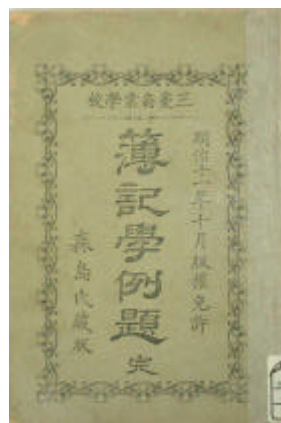 三菱商業學校
明治十一年十月版權免許
簿記學例題 完
森島氏蔵版